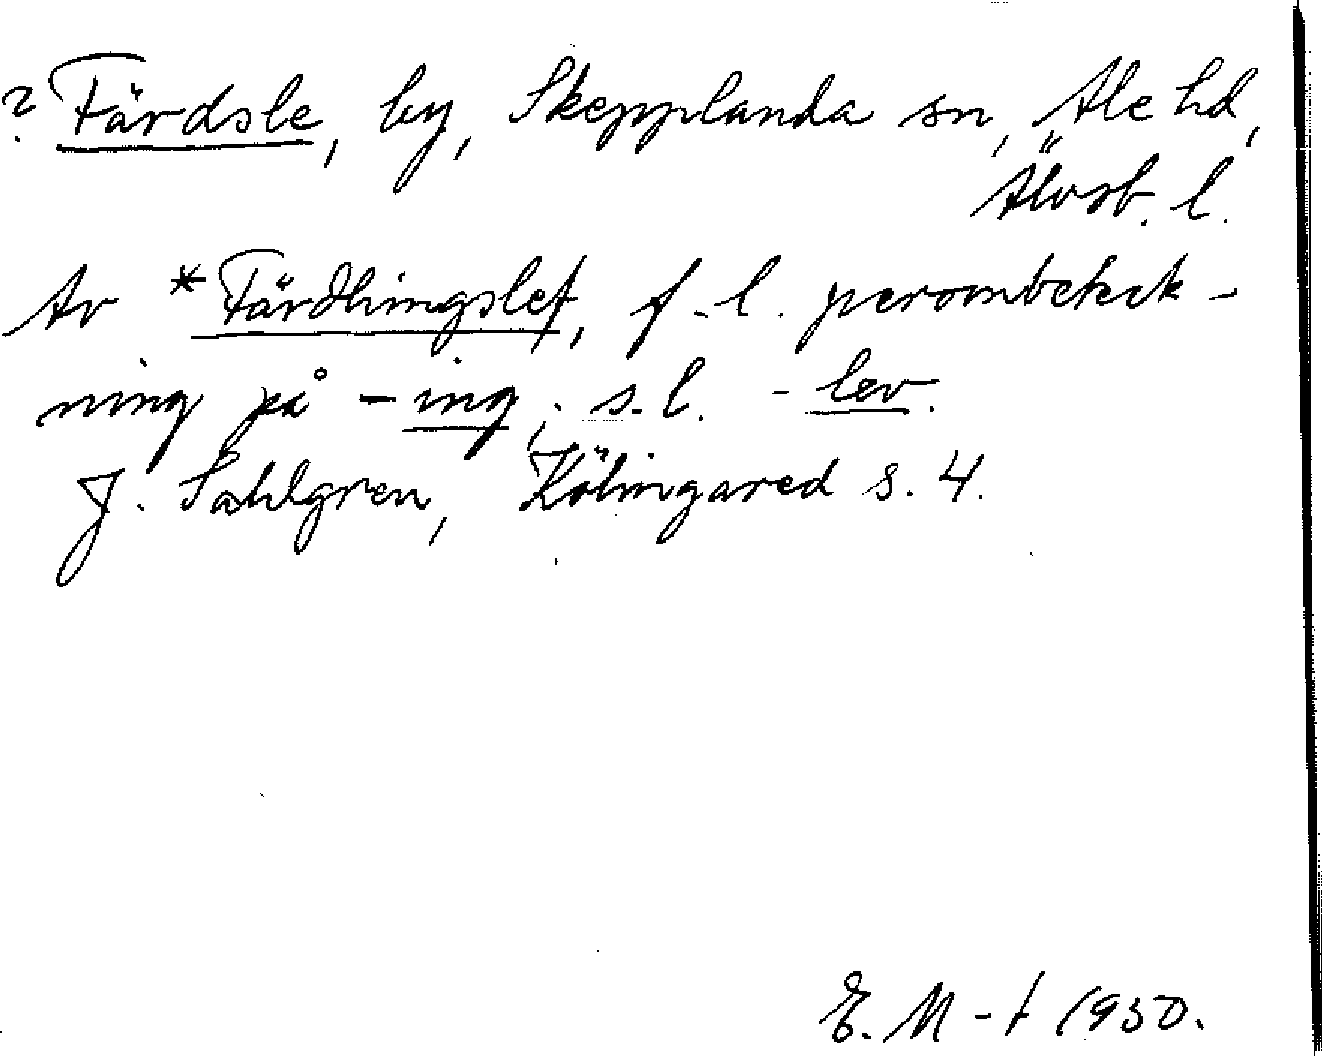 ? Färdsle, by, Skepplanda sn, Ale hd,
Älvsb. l.
Av *Färdhingslef, f.l. personbeteck-
ning på -ing; s.l. -lev.
J. Sahlgren, Kölingared s. 4.
E. M-t 1950.